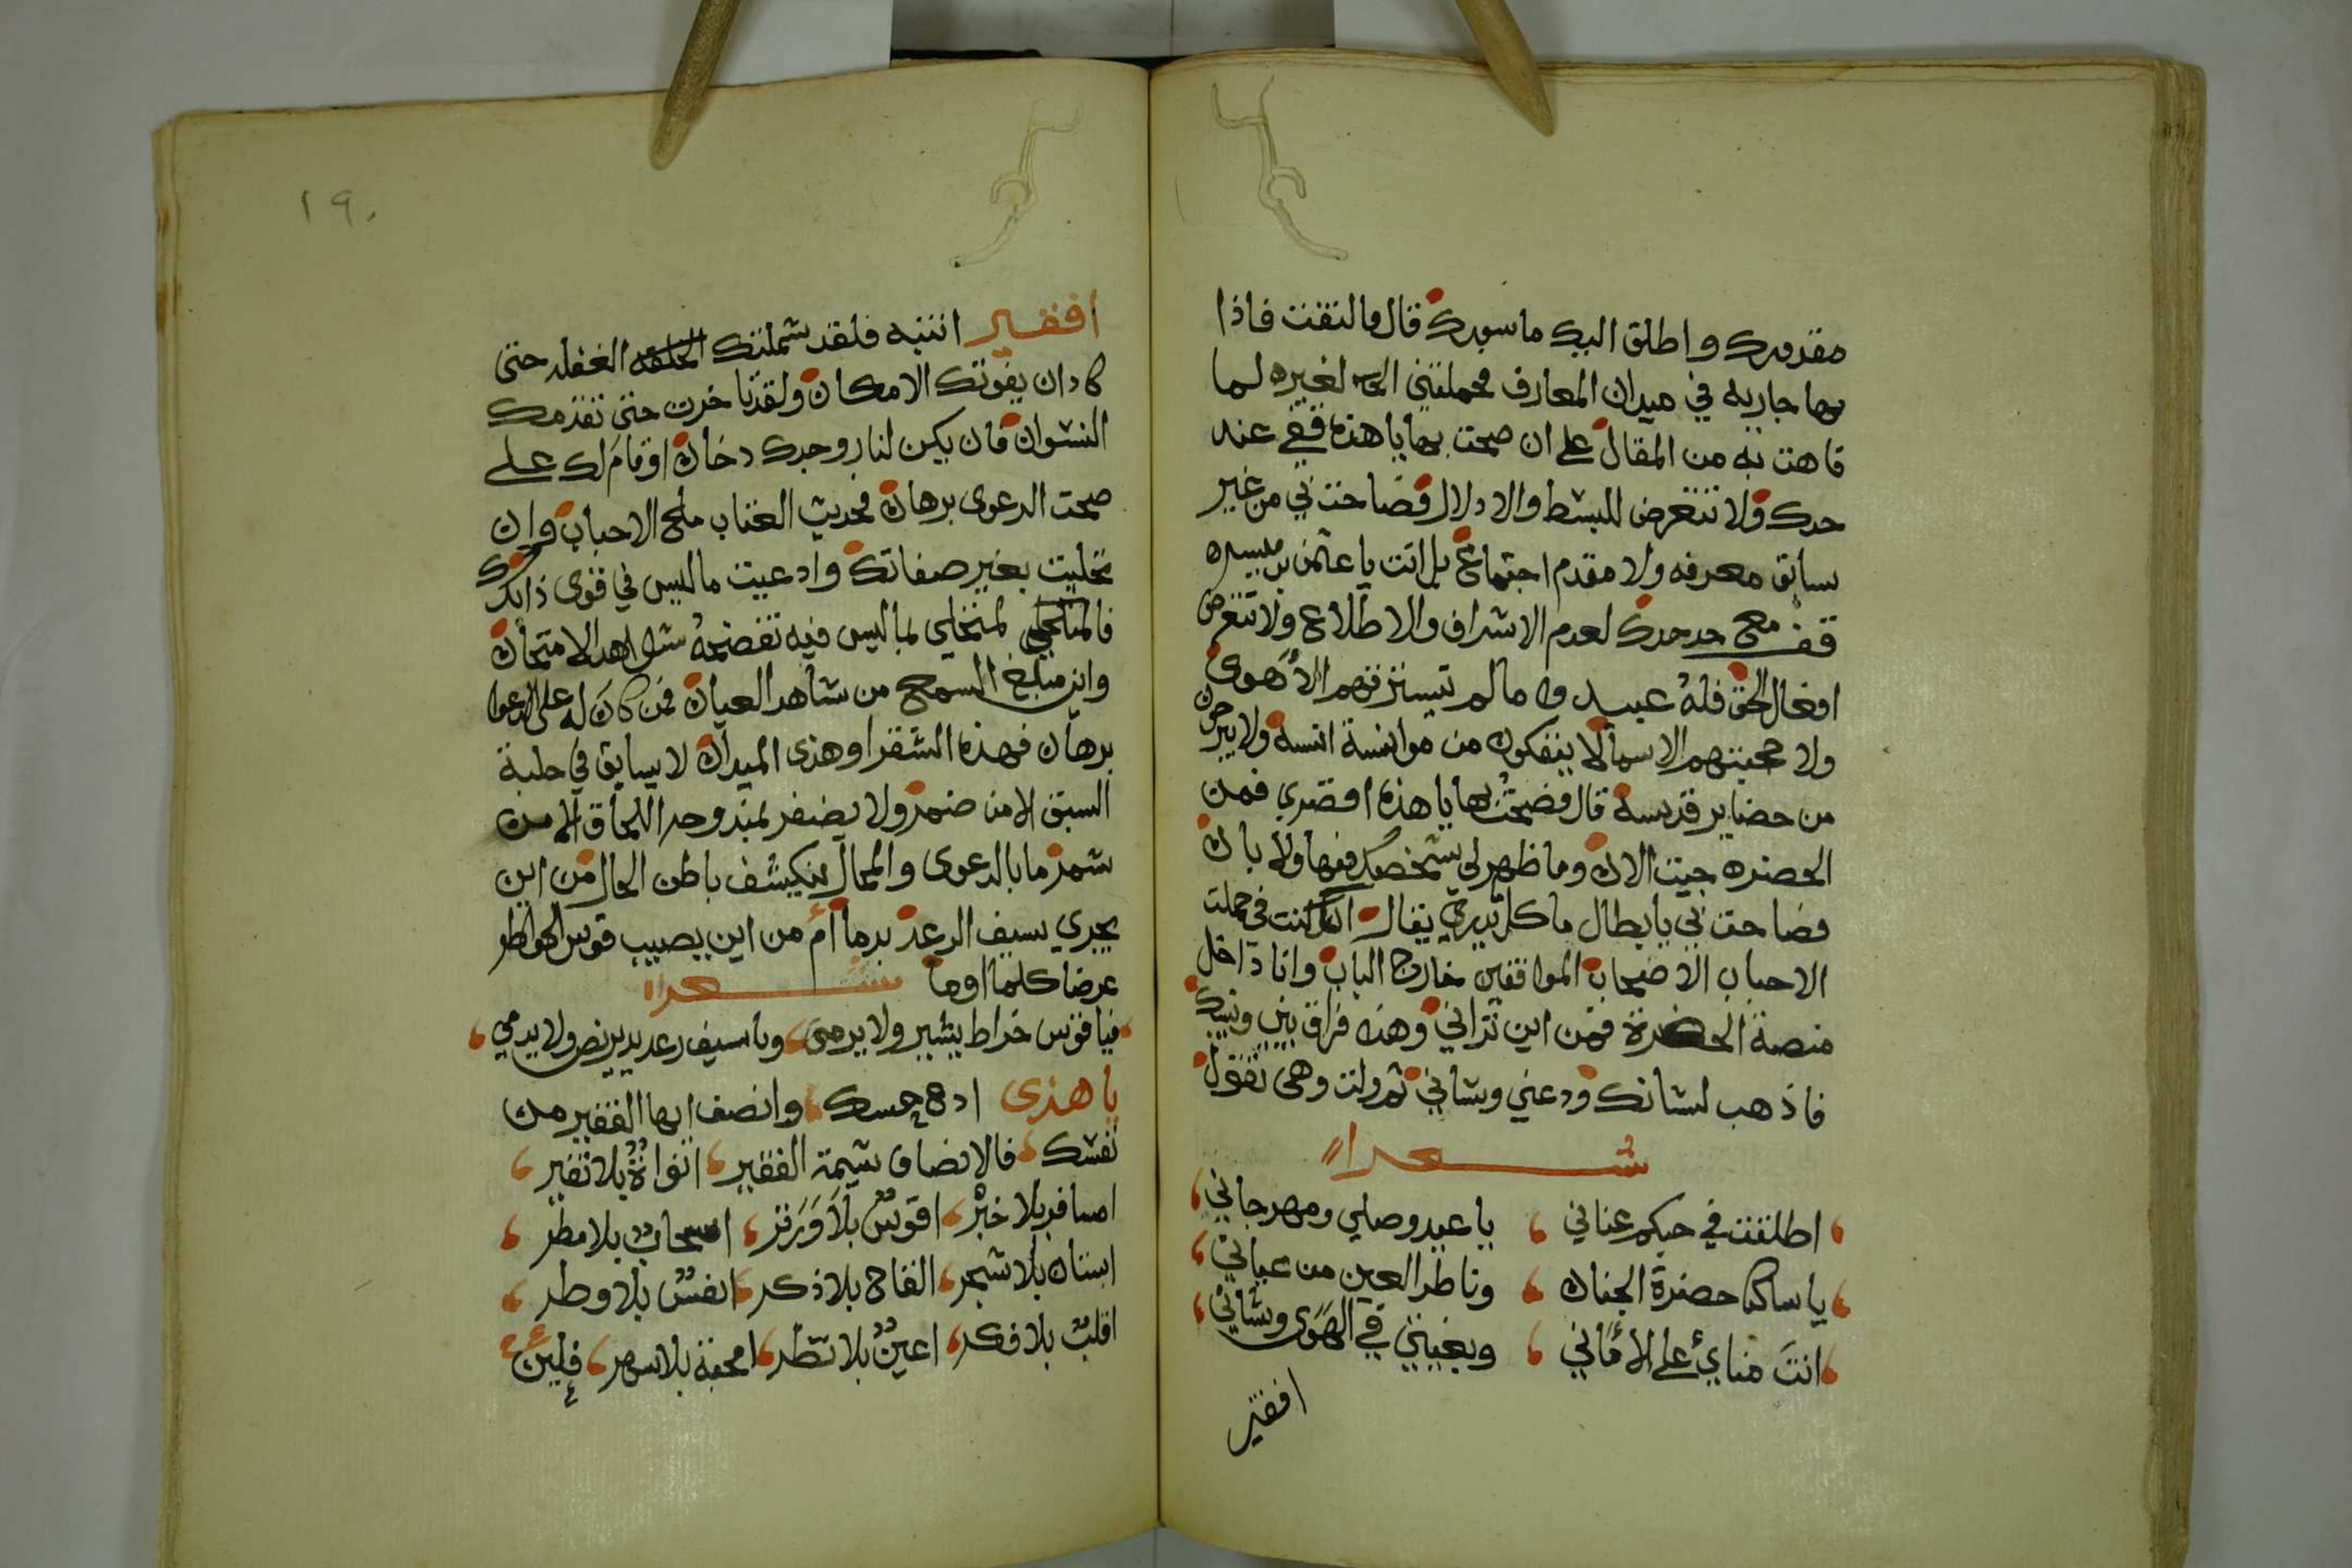 مقدورك واطلق اليك ماسورك قال فالتفت فاذا
بها جاريه في ميدان المعارف فحملتني لغيره لما
فاهت به من المقال على ان صحت بها يا هذه قفي عند
حدك ولا تتعرض للبسط والادلال فصاحت بي من غير
سابق معرفه ولا مقدم اجتماع بل انت يا عثمن بن ميسره
قف مع حد حدك لعدم الاشراف والاطلاع ولا تتعرض
افعال الحق فله عبيد ما لم تسترقهم الأهوى
ولا حجبتهم الاسما لا ينفكون من موانسة انسه ولا يبرحون
من حضاير قدسه قال فصحت بها يا هذه اقصري فمن
الحضره جيت الان وما ظهر لي شخصك فيها ولا بان
فصاحت بي يا بطال ما كل يدري يقال كنت في جملت
الاحباب الاصحاب المواقفين خارج الباب وانا داخل
منصة الحضرة فمن اين تراني وهذه فراق بيني وبينك
فاذهب لشانك ودعني وشاني ثم ولت وهي تقول
شعرا
اطلقت في حبكم عناني يا عيد وصلي ومهرجاني
يا ساكنا حضرة الجنان وناظر العين من عياني
انت مناي على الأماني وبغيتي في الهوى وشاني
افقير
١٩٠
افقير انتبه فلقد شملتك الغفله حتى
كاد ان يفوتك الامكان ولقد تاخرت حتى تقدمك
النسوان فان يكن لنار وجدك دخان او قام لك على
صحت الدعوى برهان فحديث العتاب ملح الاحباب وان
تحليت بغير صفاتك وادعيت ما ليس في قوى ذاتك
فالمتحلي بما ليس فيه تفضحه شواهد الامتحان
واين مبلغ السمع من شاهد العيان فمن كان له على الدعوا
برهان فهذه الشقرا وهذى الميدان لا يسابق في حلبة
السبق الا من ضمر ولا يضفر بمند وحد اللحاق الا من
شمر ما بالدعوى والمحال ينكشف باطن الحال من اين
يجري سيف الرعد بدما أم من اين يصيب قوس الخواطر
عرضا كلما اوما شعرا
فيا قوس خراط يشير ولا يرمى ويا سيف رعديد يرض ولا يدمي
يا هذى ادع حسك وانصف ايها الفقير من
نفسك فالانصاف شيمة الفقير انواة بلا نقير
امسافر بلا خبر اقوس بلا وتر اسحاب بلا مطر
ابستان بلا شجر القاح بلا ذكر انفس بلا وطر
اقلب بلا فكر اعين بلا نظر امحبة بلا سهر فلين